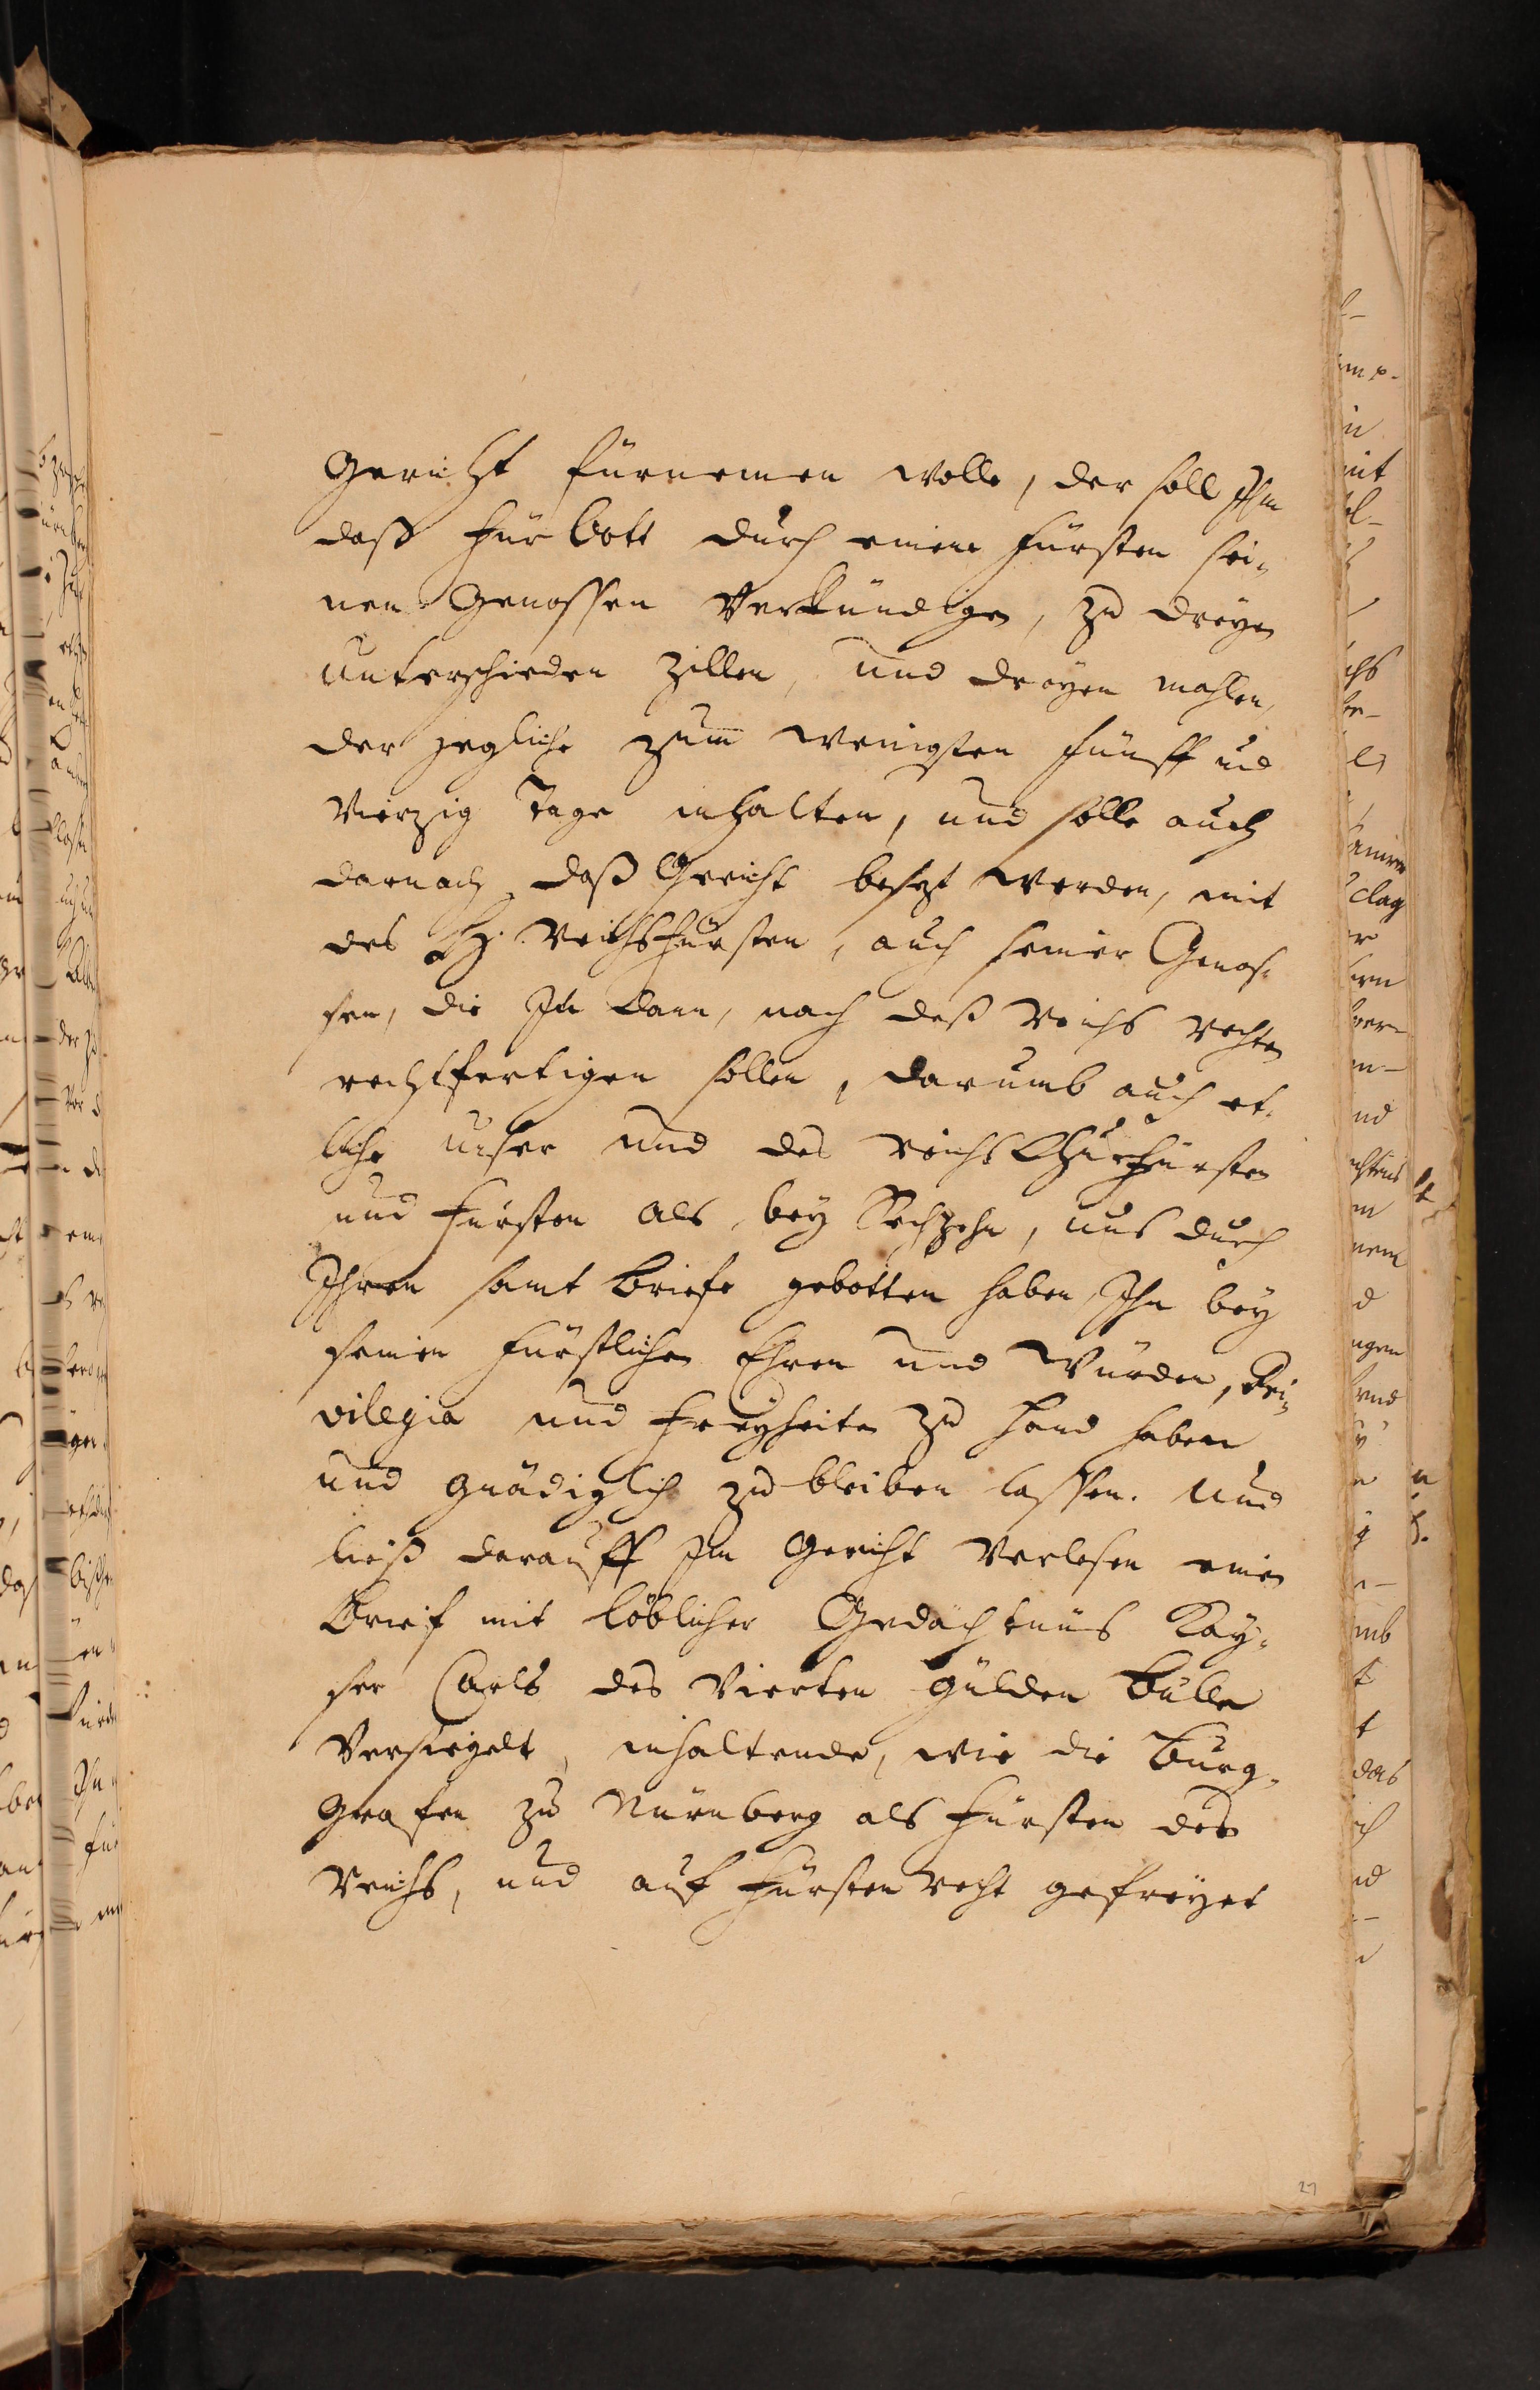 Gericht fürnemen wolle, der soll Ihm
daß Fürbott durch einen Fürsten sei-
nen Genossen Verkündigen, zu dreyen
Unterschieden Zillen, und dreyen mahlen,
der jegliche zum wenigsten fünff und
Vierzig Tage inhalten, und solle auch
darnach, daß Gericht besezt werden, mit
des H. Reichsfürsten, auch seiner Genos-
sen, die In dann, nach deß Reichs Rechten
rechtfertigen sollen, darumb auch et-
liche unser und des Reichs Churfürsten
und Fürsten als bey Sechzehn, uns durch
Ihren samt Briefe gebotten haben, Ihn bey
seinen Fürstlichen Ehren und Würden, Pri-
vilegia und Freyheiten zu Hand haben
und gnädiglich zu bleiben lassen. Und
ließ darauff Im Gericht Verlesen einen
Brief mit löblicher Gedächtnüs Kay-
ser Carls des Vierten gülden Bulle
Versiegelt, inhaltende, wie die Burg-
grafen zu Nürnberg als Fürsten des
Reichs, und auf Fürsten Recht gefreyet
27